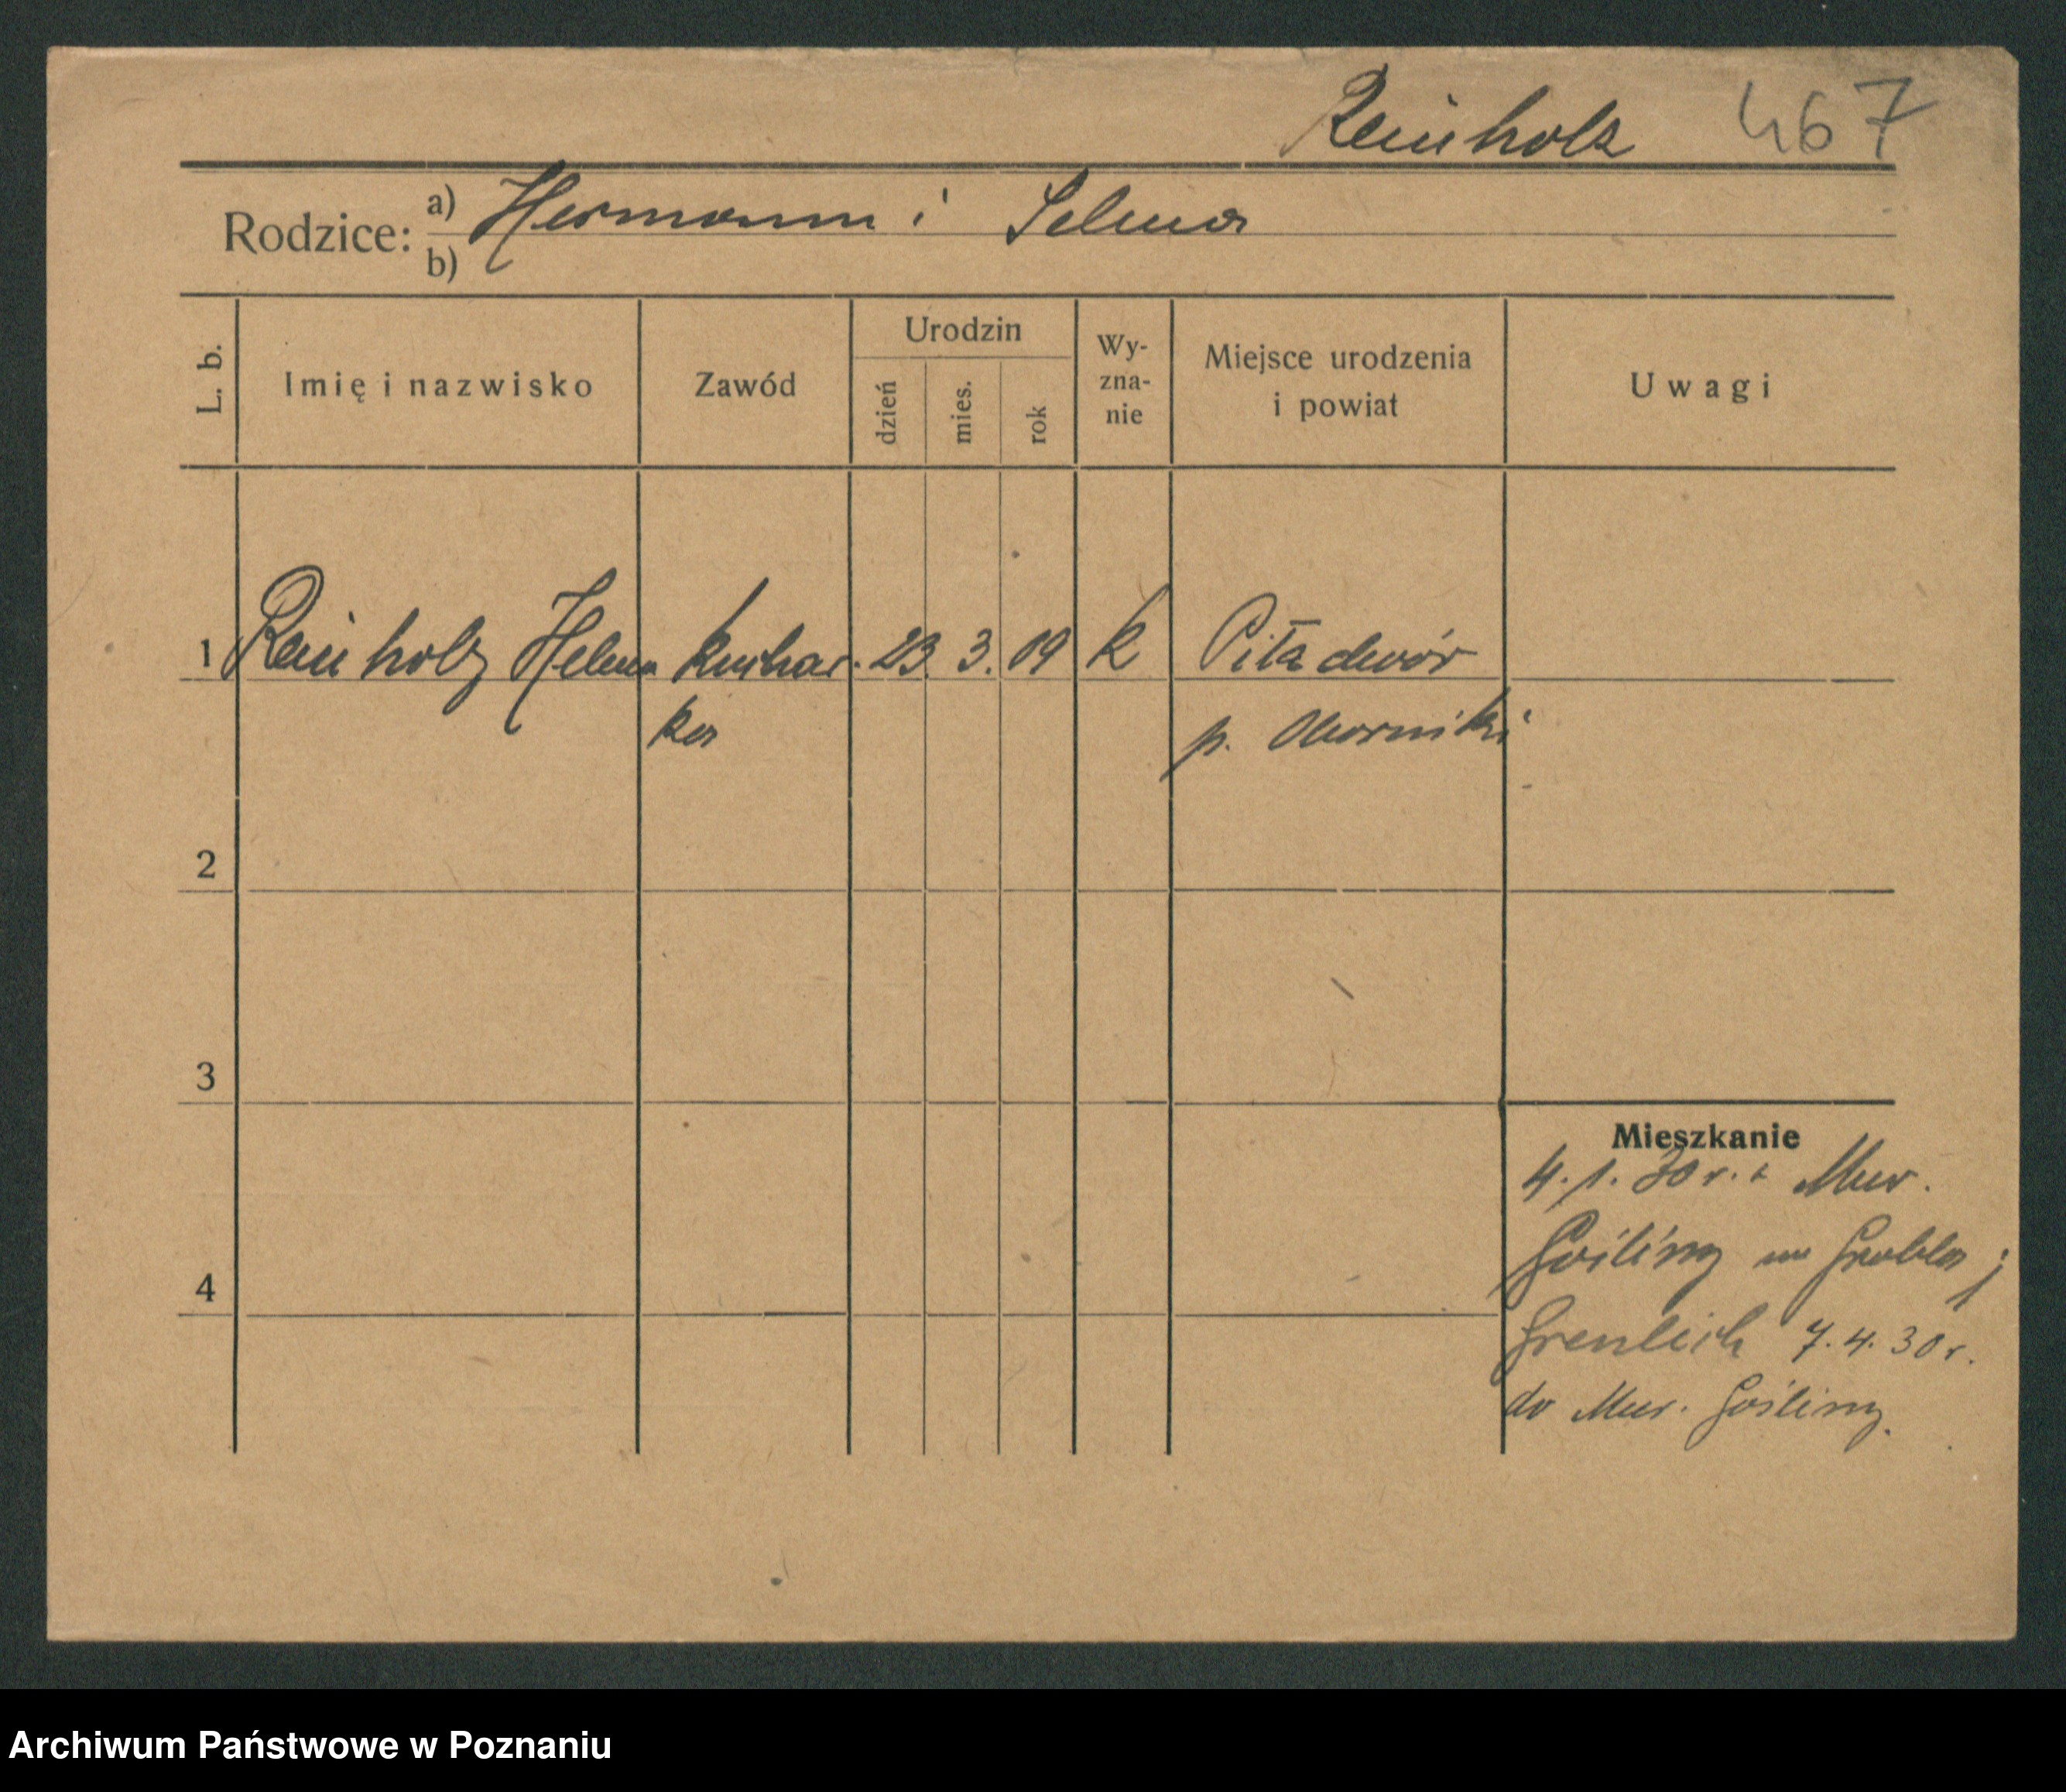 Reinholz 467
Rodzice: a) Hermann i Selma
b)
L. b. Imię i nazwisko Zawód Urodzin dzień mies. rok Wy-zna-nie Miejsce urodzenia i powiat Uwagi
1 Reinholz Helena kuchar- 23. 3. 09 k Piła dwór
ka p. Oborniki
2
3
4
Mieszkanie
4.1.30 r. z Mur.
Gośliny na Grobla
7.4.30 r.
do Mur. Gośliny.
Archiwum Państwowe w Poznaniu